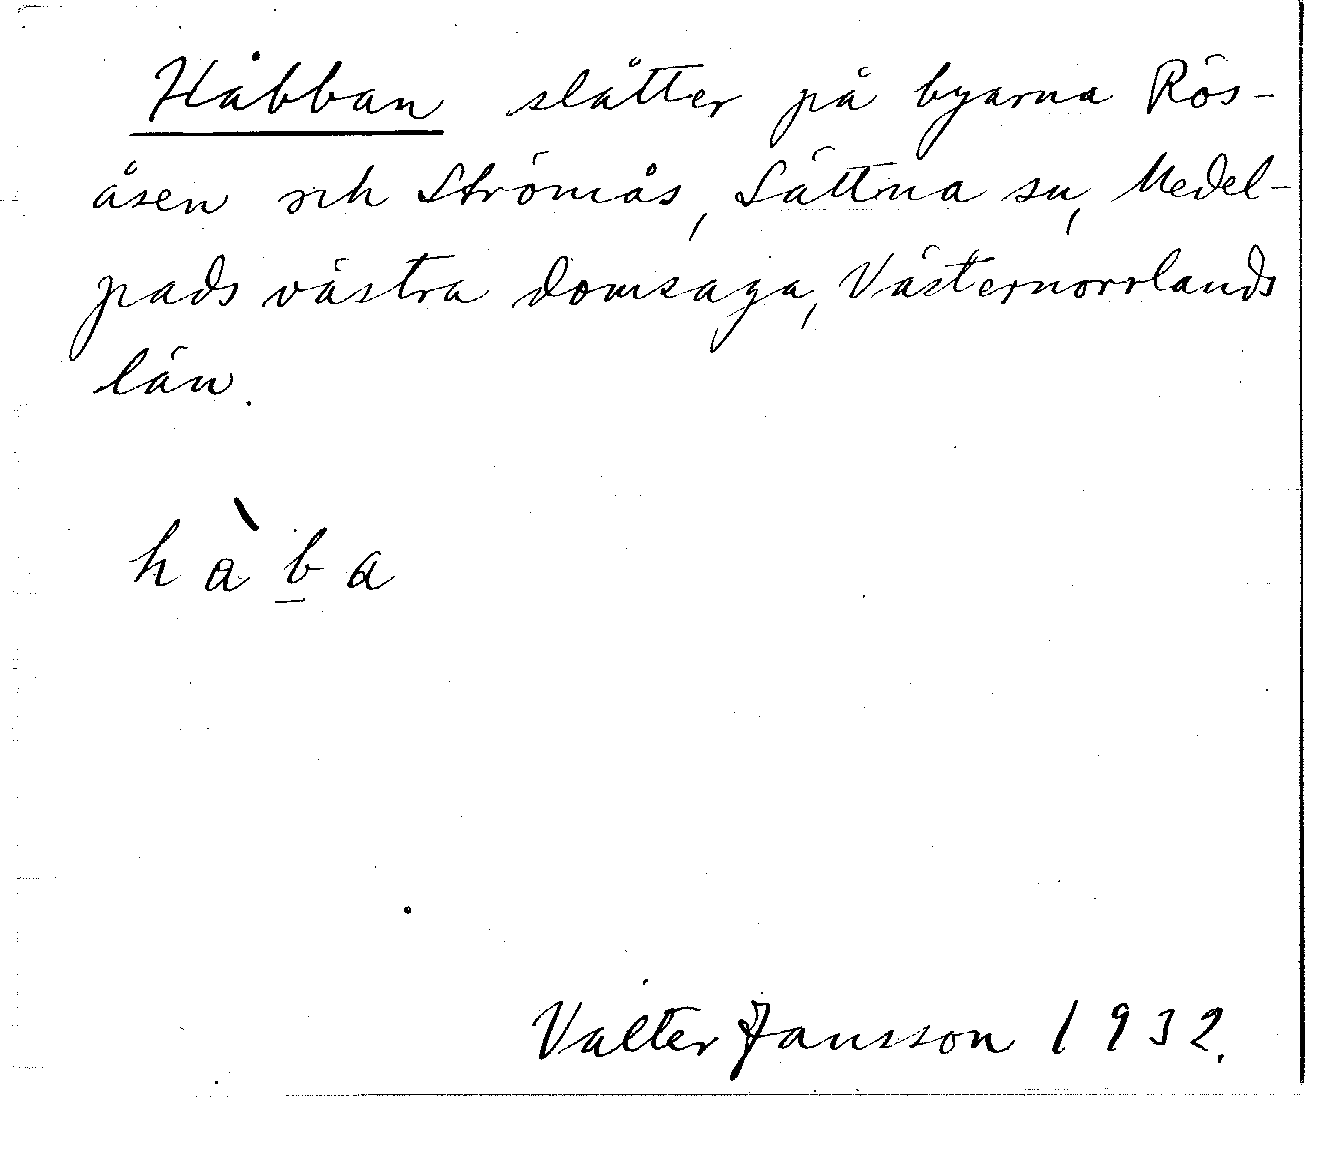 Håbban slåtter på byarna Rös-
åsen och Strömås, Sättna sn, Medel-
pads västra domsaga, Västernorrlands
län.
hàb̲a
Valter Jansson 1932.